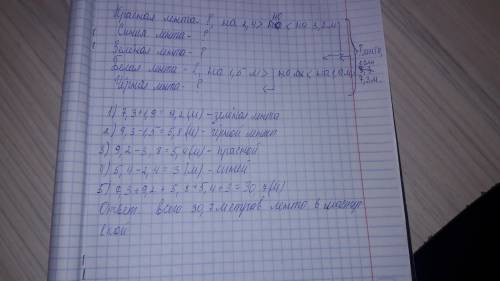 Красная лента - ?, на 2,4 > но < на 3,8 м
Синяя лента - ?
Зелёная лента - ?
Белая лента - ?, на 1,5 м > но < на 1,9 м
Чёрная лента - ?
? лента,
7,3 м.
1) 7,3 + 1,9 = 9,2 (м) - зелёная лента
2) 7,3 - 1,5 = 5,8 (м) - чёрной ленты
3) 9,2 - 3,8 = 5,4 (м) - красной
4) 5,4 - 2,4 = 3 (м) - синей
5) 7,3 + 9,2 + 5,8 + 5,4 + 3 = 30,7 (м)
Ответ: всего 30,7 метров ленты в мастер
ской